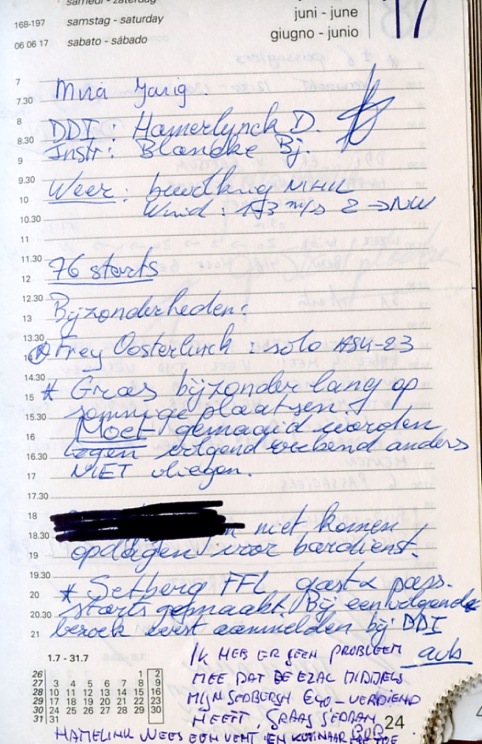 samedi - zaterdag
168-197 samstag - saturday
06 06 17 sabato - sábado
juni - june
giugno - junio
17
7
7.30
8
8.30
9
9.30
10
10.30
11
11.30
12
12.30
13
13.30
14.30
15
15.30
16
16.30
17
17.30
18
18.30
19
19.30
20
20.30
21
DDI: Hamerlynck D.
Instr: Blancke Bj.
Weer: bewolking
Wind: 1/3 m/s Z → NW
76 starts
Bijzonderheden:
Frey Oosterlinck: solo ASK-23
* Gras bijzonder lang op
sommige plaatsen!
Moet gemaaid worden
tegen volgend weekend anders
NIET vliegen.
niet komen
opdagen voor bardienst.
* Setberg FFL gast & pass.
starts gemaakt. Bij een volgende
bezoek eerst aanmelden bij DDI
aub
IK HEB ER GEEN PROBLEEM
MEE DAT DE EZAC MIDDELS
MIJN SEDBURGH €40,- VERDIEND
HEEFT,
HAMELINK WEES EEN VENT, EN
1.7 - 31.7
26 1 2
27 3 4 5 6 7 8 9
28 10 11 12 13 14 15 16
29 17 18 19 20 21 22 23
30 24 25 26 27 28 29 30
31 31
24